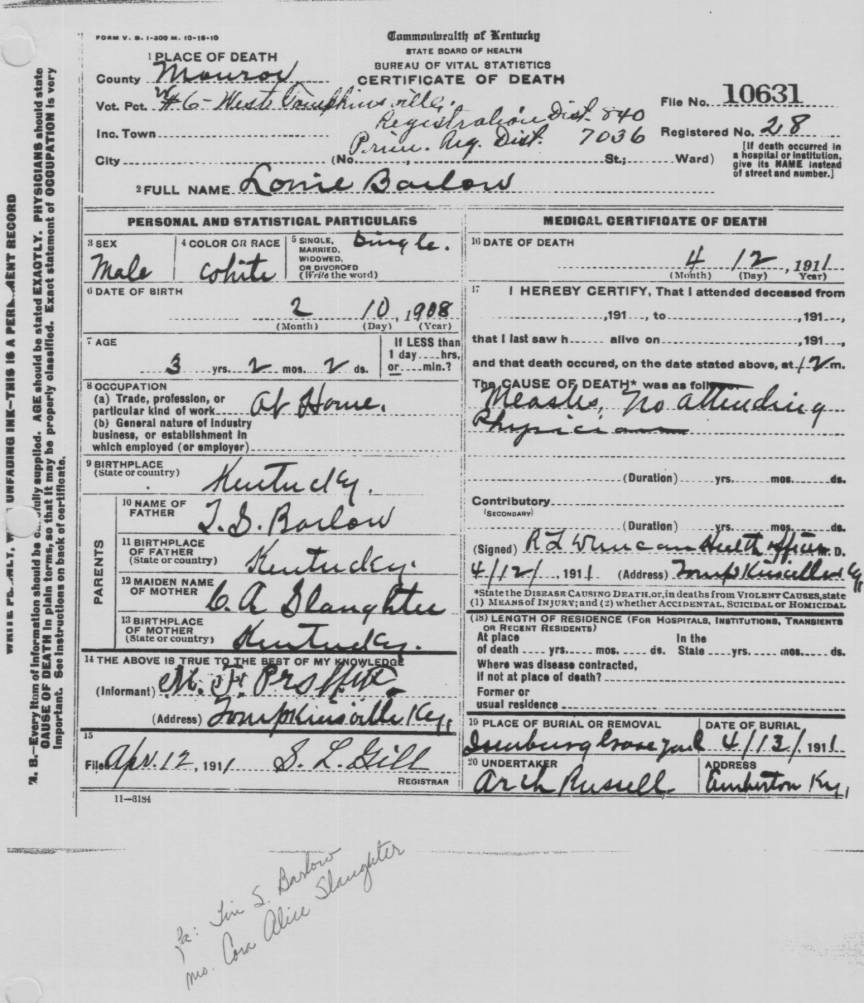 FORM V. S. 1-200 M. 10-15-10
Commonwealth of Kentucky
STATE BOARD OF HEALTH
BUREAU OF VITAL STATISTICS
CERTIFICATE OF DEATH
1 PLACE OF DEATH
County Monroe
Vot. Pct. #6 - West Tompkinsville
Registration Dist. 840
Inc. Town
Prim. Reg. Dist. 7036
File No. 10631
Registered No. 28
City (No. , St.; Ward)
[If death occurred in
a hospital or institution,
give its NAME instead
of street and number.]
2 FULL NAME Lonie Barlow
PERSONAL AND STATISTICAL PARTICULARS
3 SEX
Male
4 COLOR OR RACE
White
5 SINGLE,
MARRIED,
WIDOWED,
OR DIVORCED
(Write the word)
Single.
6 DATE OF BIRTH
2 10, 1908
(Month) (Day) (Year)
7 AGE
3 yrs. 2 mos. 2 ds.
If LESS than
1 day hrs,
or min.?
8 OCCUPATION
(a) Trade, profession, or
particular kind of work At Home.
(b) General nature of industry
business, or establishment in
which employed (or employer)
9 BIRTHPLACE
(State or country)
Kentucky.
PARENTS
10 NAME OF
FATHER
T. S. Barlow
11 BIRTHPLACE
OF FATHER
(State or country)
Kentucky.
12 MAIDEN NAME
OF MOTHER
C. A Slaughter
13 BIRTHPLACE
OF MOTHER
(State or country)
Kentucky.
14 THE ABOVE IS TRUE TO THE BEST OF MY KNOWLEDGE
(Informant) M. F.
(Address) Tompkinsville Ky,
15
Filed Apr. 12, 1911 S. L. Gill
REGISTRAR
11-3184
MEDICAL CERTIFICATE OF DEATH
16 DATE OF DEATH
4 12, 1911
(Month) (Day) Year)
17 I HEREBY CERTIFY, That I attended deceased from
,191 , to ,191 ,
that I last saw h alive on ,191 ,
and that death occured, on the date stated above, at 12 m.
The CAUSE OF DEATH* was as follows:
Measles, No attending
Physician
(Duration) yrs. mos. ds.
Contributory
(SECONDARY)
(Duration) yrs. mos. ds.
(Signed) R L Duncan Health Officer M. D.
4/12/ 1911 (Address) Tompkinsville Ky
*State the DISEASE CAUSING DEATH, or, in deaths from VIOLENT CAUSES, state
(1) MEANS OF INJURY; and (2) whether ACCIDENTAL, SUICIDAL or HOMICIDAL
(18) LENGTH OF RESIDENCE (FOR HOSPITALS, INSTITUTIONS, TRANSIENTS
OR RECENT RESIDENTS)
At place In the
of death yrs. mos. ds. State yrs. mos. ds.
Where was disease contracted,
if not at place of death?
Former or
usual residence
19 PLACE OF BURIAL OR REMOVAL
Grave yard
DATE OF BURIAL
4/13/ 1911
20 UNDERTAKER
Arch Russell
ADDRESS
Ky,
WRITE PLAINLY, WITH UNFADING INK—THIS IS A PERMANENT RECORD
N. B.—Every item of information should be carefully supplied. AGE should be stated EXACTLY. PHYSICIANS should state
CAUSE OF DEATH in plain terms, so that it may be properly classified. Exact statement of OCCUPATION is very
important. See instructions on back of certificate.
fa: Tim S. Barlow
mo. Cora Alice Slaughter